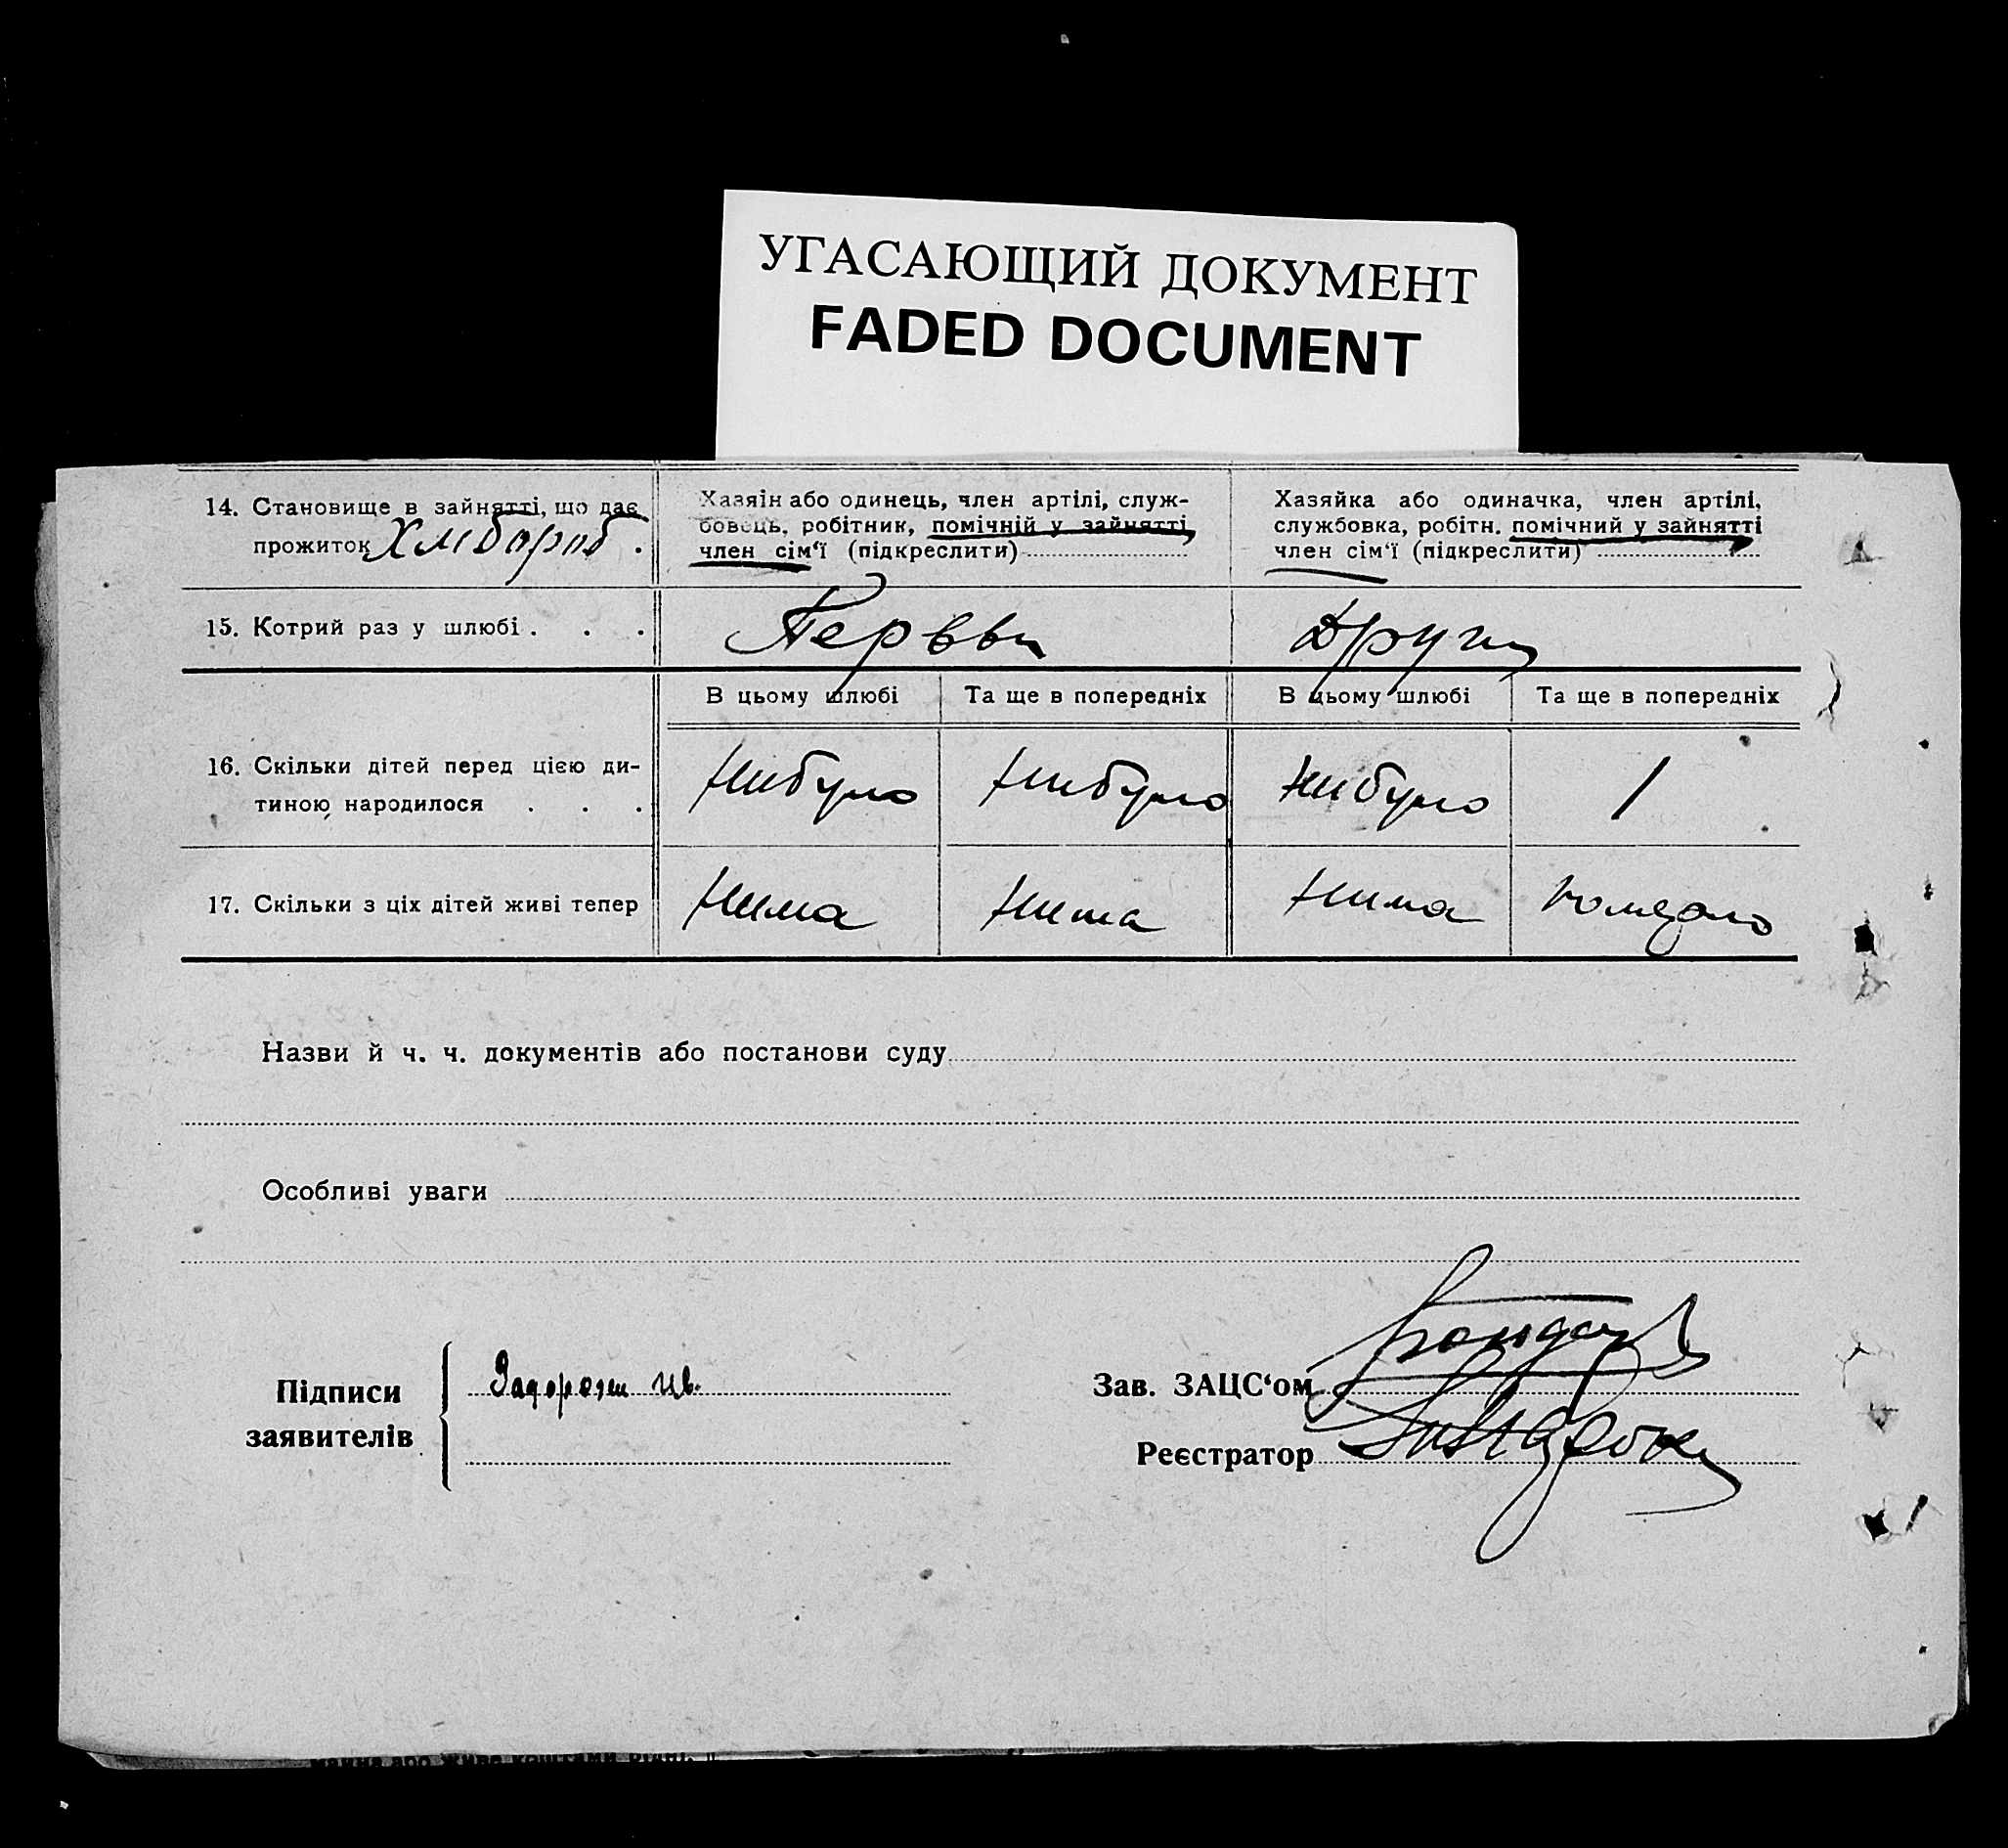 УГАСАЮЩИЙ ДОКУМЕНТ
FADED DOCUMENT
14. Становище в зайнятті, що дає прожиток Хлибороб.
Хазяїн або одинець, член артілі, служ-
бовець, робітник, помічній у зайнятті
член сім‘ї (підкреслити)
Хазяйка або одиначка, член артілі,
службовка, робітн. помічний у зайнятті
член сім‘ї (підкреслити)
15. Котрий раз у шлюбі . . . Первы Други
В цьому шлюбі Та ще в попередніх В цьому шлюбі Та ще в попередніх
16. Скільки дітей перед цією ди-
тиною народилося . . . Нибуло Нибуло Нибуло 1
17. Скільки з ціх дітей живі тепер Нима Нима Нима
Назви й ч. ч. документів або постанови суду
Особливі уваги
Підписи
заявителів
Задорожн Ив.
Зав. ЗАЦС‘ом
Реєстратор